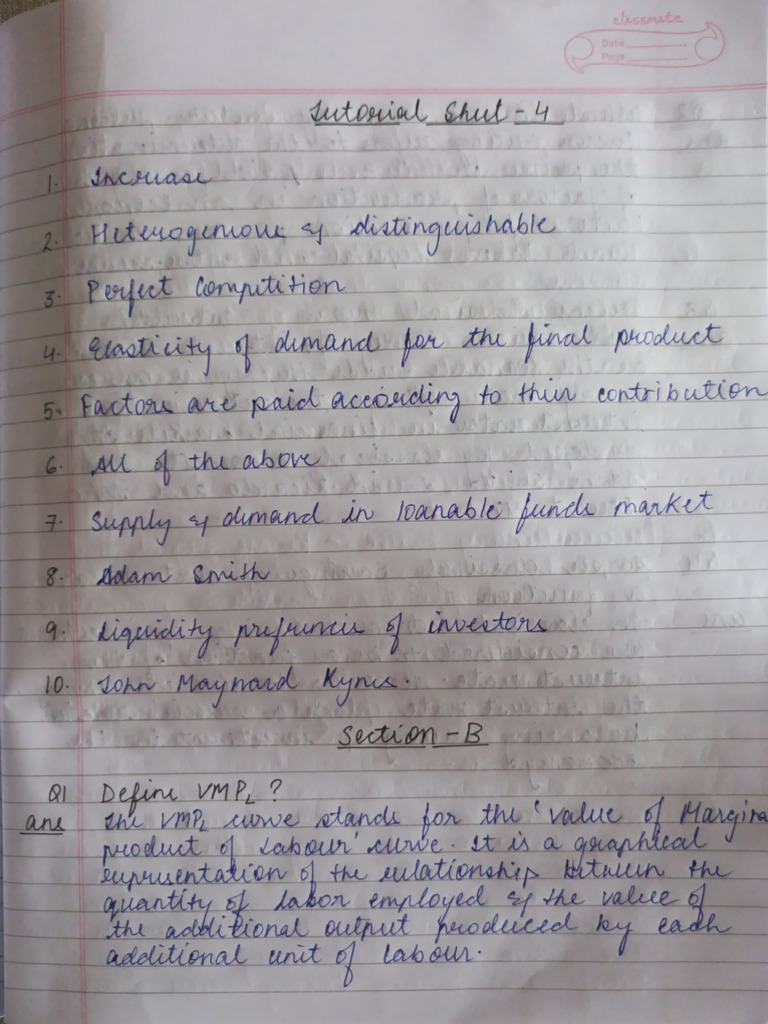 classmate
Date
Page
Tutorial Sheet - 4
1. Increase
2. Heterogenious & distinguishable
3. Perfect Competition
4. Elasticity of demand for the final product
5. Factors are paid according to their contribution
6. All of the above
7. Supply & demand in loanable funds market
8. Adam Smith
9. Liquidity prefrencie of investors
10. John Maynard Kynes.
Section - B
Q1 Define VMPL ?
ans The VMPL curve stands for the 'value of Margina
product of Labour' curve. It is a graphical
representation of the relationship between the
quantity of Labor employed & the value of
the additional output produced by each
additional unit of Labour.